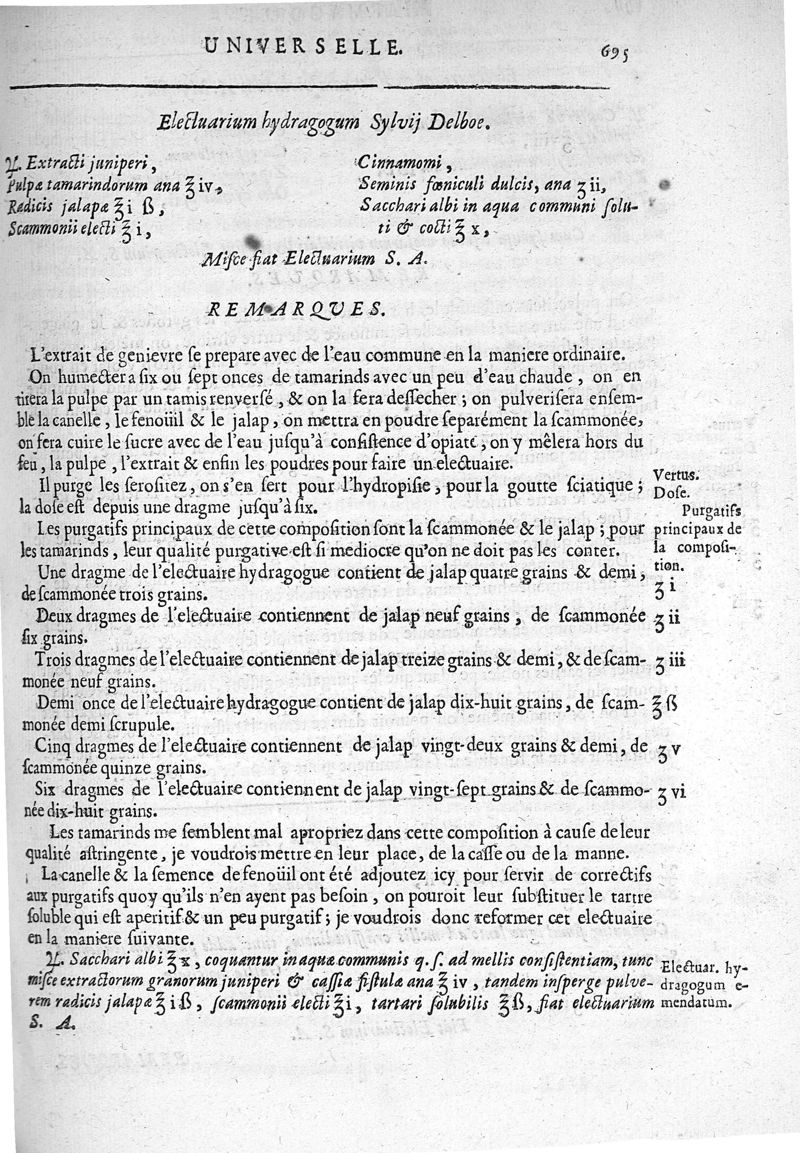 UNIVERSELLE.
695
Electuarium hydragogum Sylvij Delboe.
♃. Extracti juniperi,
Pulpæ tamarindorum ana ℥ iv,
Radicis jalapæ ℥ i ß,
Scammonii electi ℥ i,
Cinnamomi,
Seminis fœniculi dulcis, ana ʒ ii,
Sacchari albi in aqua communi ſolu-
ti & cocti ℥ x,
Miſce fiat Electuarium S. A.
REMARQUES.
L'extrait de genievre ſe prepare avec de l'eau commune en la maniere ordinaire.
On humectera ſix ou ſept onces de tamarinds avec un peu d'eau chaude, on en
titera la pulpe par un tamis renverſé, & on la fera deſſecher; on pulveriſera enſem-
ble la canelle, le fenoüil & le jalap, on mettra en poudre ſeparément la ſcammonée,
on fera cuire le ſucre avec de l'eau juſqu'à conſiſtence d'opiate, on y mêlera hors du
feu, la pulpe, l'extrait & enfin les poudres pour faire un electuaire.
Il purge les ſeroſitez, on s'en ſert pour l'hydropiſie, pour la goutte ſciatique;
la doſe eſt depuis une dragme juſqu'à ſix.
Vertus.
Doſe.
Les purgatifs principaux de cette compoſition ſont la ſcammonée & le jalap; pour
les tamarinds, leur qualité purgative eſt ſi mediocre qu'on ne doit pas les conter.
Purgatifs
principaux de
la compoſi-
tion.
Une dragme de l'electuaire hydragogue contient de jalap quatre grains & demi,
de ſcammonée trois grains.
ʒ i
Deux dragmes de l'electuaire contiennent de jalap neuf grains, de ſcammonée
ſix grains.
ʒ ii
Trois dragmes de l'electuaire contiennent de jalap treize grains & demi, & de ſcam-
monée neuf grains.
ʒ iii
Demi once de l'electuaire hydragogue contient de jalap dix-huit grains, de ſcam-
monée demi ſcrupule.
℥ ß
Cinq dragmes de l'electuaire contiennent de jalap vingt-deux grains & demi, de
ſcammonée quinze grains.
ʒ v
Six dragmes de l'electuaire contiennent de jalap vingt-ſept grains & de ſcammo-
née dix-huit grains.
ʒ vi
Les tamarinds me ſemblent mal apropriez dans cette compoſition à cauſe de leur
qualité aſtringente, je voudrois mettre en leur place, de la caſſe ou de la manne.
La canelle & la ſemence de fenoüil ont été adjoutez icy pour ſervir de correctifs
aux purgatifs quoy qu'ils n'en ayent pas beſoin, on pouroit leur ſubſtituer le tartre
ſoluble qui eſt aperitif & un peu purgatif; je voudrois donc reformer cet electuaire
en la maniere ſuivante.
♃. Sacchari albi ℥ x, coquantur in aquæ communis q. ſ. ad mellis conſiſtentiam, tunc
miſce extractorum granorum juniperi & caſſiæ fiſtulæ ana ℥ iv, tandem inſperge pulve-
rem radicis jalapæ ℥ i ß, ſcammonii electi ℥ i, tartari ſolubilis ℥ ß, fiat electuarium
S. A.
Electuar. hy-
dragogum e-
mendatum.